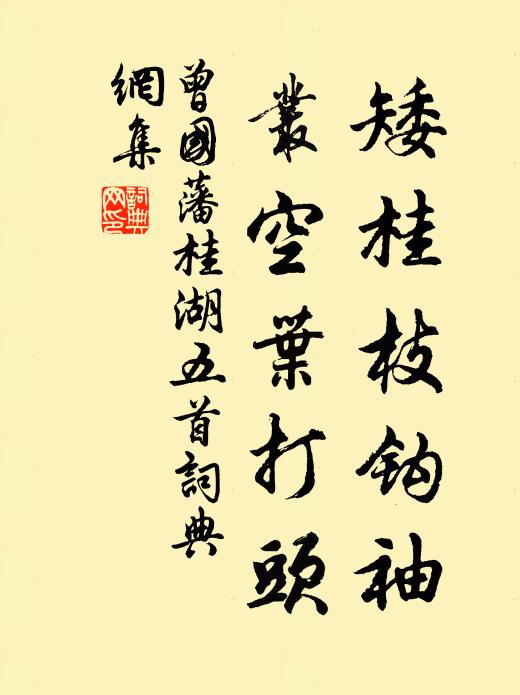 矮桂枝鈎袖
叢空葉打頭
曾國藩桂湖五首詞典
網集
詞典
網印